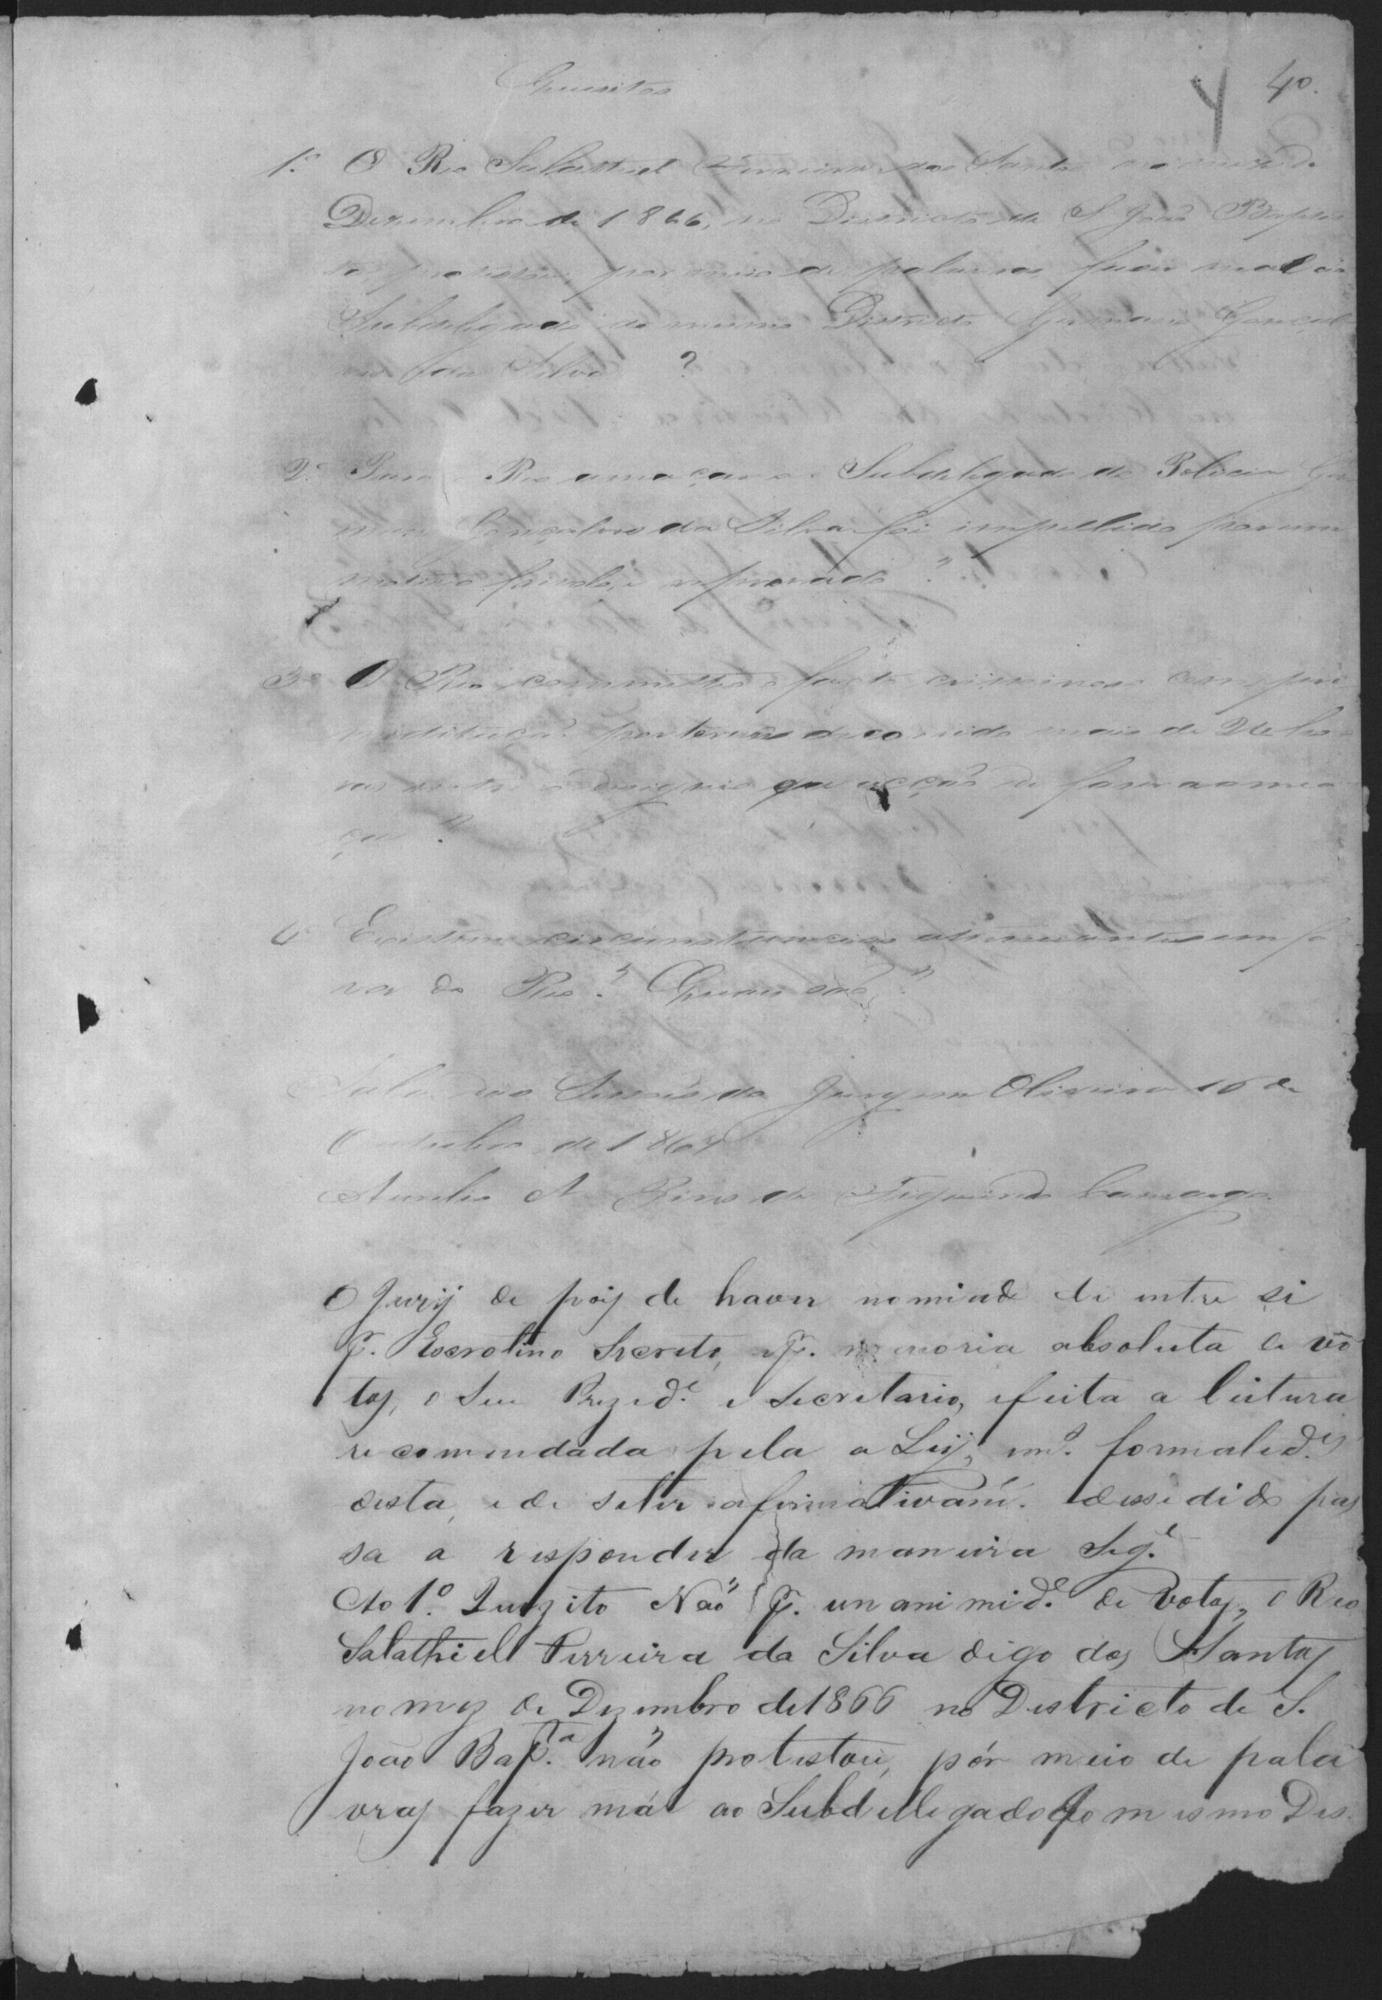 Quesitos
40.
1.º O Reo Salathiel Ferreira dos Santos no mez de
Dezembro de 1866, no Districto de S. João Baptis
ta protestou por meio de palavras fazer mal ao
Subdelegado do mesmo Districto Germano Gonçal
ves da Silva ?
2.º Para o Reo ameaçar o Subdelegado de Policia Ger
mano Gonçalves da Silva foi impellido por um
motivo frivolo, e reprovado ?
3.º O Reo commetteo o facto criminoso com pre
meditação por ter decorrido mais de 24 ho
ras entre o designio que acção de fazer a amea
ça ?
4º Existem circunstancias attenuantes em fa
vor do Reo ? Quaes são ?
Sala das Sessões do Jury em Oliveira 16 de
Outubro de 1867
Aurelio A. Pires de Figueiredo Camargo
O Jurij de pois de haver nomiado de entre si
p. Escrotino Secreto, e p. maioria absoluta de vo
tos, o Seu Prezed.e e Secretario, e feita a leitura
recomendada pela a Leij, em formaled.es
desta, e de seter afirmativam. dessedido pas
sa a responder da maneira Seg.e
Ao 1.º Quezito Não p. unanimid.e de Votos, o Reo
Salathiel Ferreira da Silva digo dos Santos
no mez de Dezembro de 1866 no Destricto de S.
João Bap.ta não protestou, pór meio de pala
vras fazer mál ao Subdellegado do mesmo Des